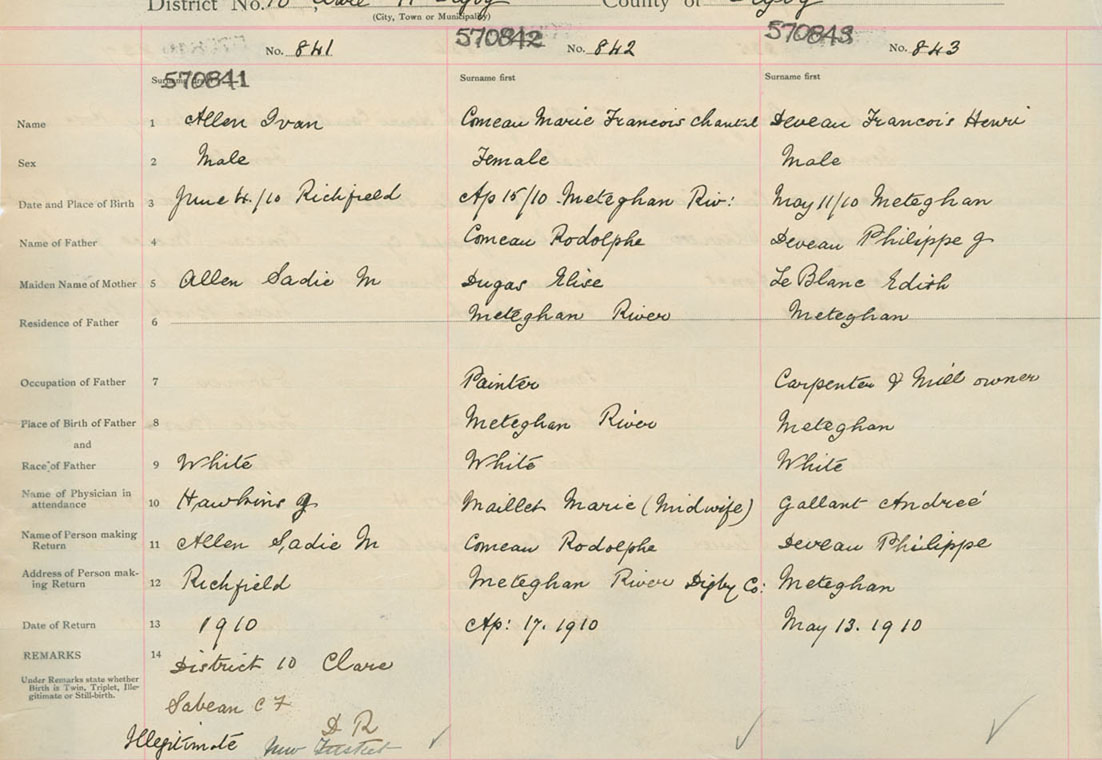 District No. 10 Clare County of Digby
(City, Town or Municipality)
No. 841 570842 No. 842 570843 No. 843
570841 Surname first Surname first
Name 1 Allen Ivan Comeau Marie Francois Chantal Deveau Francois Henri
Sex 2 Male Female Male
Date and Place of Birth 3 June 4./10 Richfield Ap 15/10 Meteghan Riv: May 11/10 Meteghan
Name of Father 4 Comeau Rodolphe Deveau Philippe J
Maiden Name of Mother 5 Allen Sadie M Dugas Elise Le Blanc Edith
Residence of Father 6 Meteghan River Meteghan
Occupation of Father 7 Painter Carpenter & Mill owner
Place of Birth of Father 8 Meteghan River Meteghan
and
Race of Father 9 White White White
Name of Physician in
attendance 10 Hawkins J Maillet Marie (Midwife) Gallant Andreé
Name of Person making
Return 11 Allen Sadie M Comeau Rodolphe Deveau Philippe
Address of Person mak-
ing Return 12 Richfield Meteghan River Digby Co: Meteghan
Date of Return 13 1910 Ap: 17. 1910 May 13. 1910
REMARKS 14 District 10 Clare
Under Remarks state whether
Birth is Twin, Triplet, Ille-
gitimate or Still-birth.
Sabean C F
D R
Illegitimate New